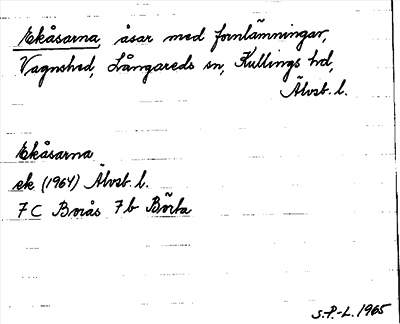 Ekåsarna, åsar med fornlämningar,
Vagnshed, Långareds sn, Kullings hd,
Älvsb. l.
Ekåsarna
ek (1964) Älvsb. l.
7 C Borås 7b
S.P.-L. 1965